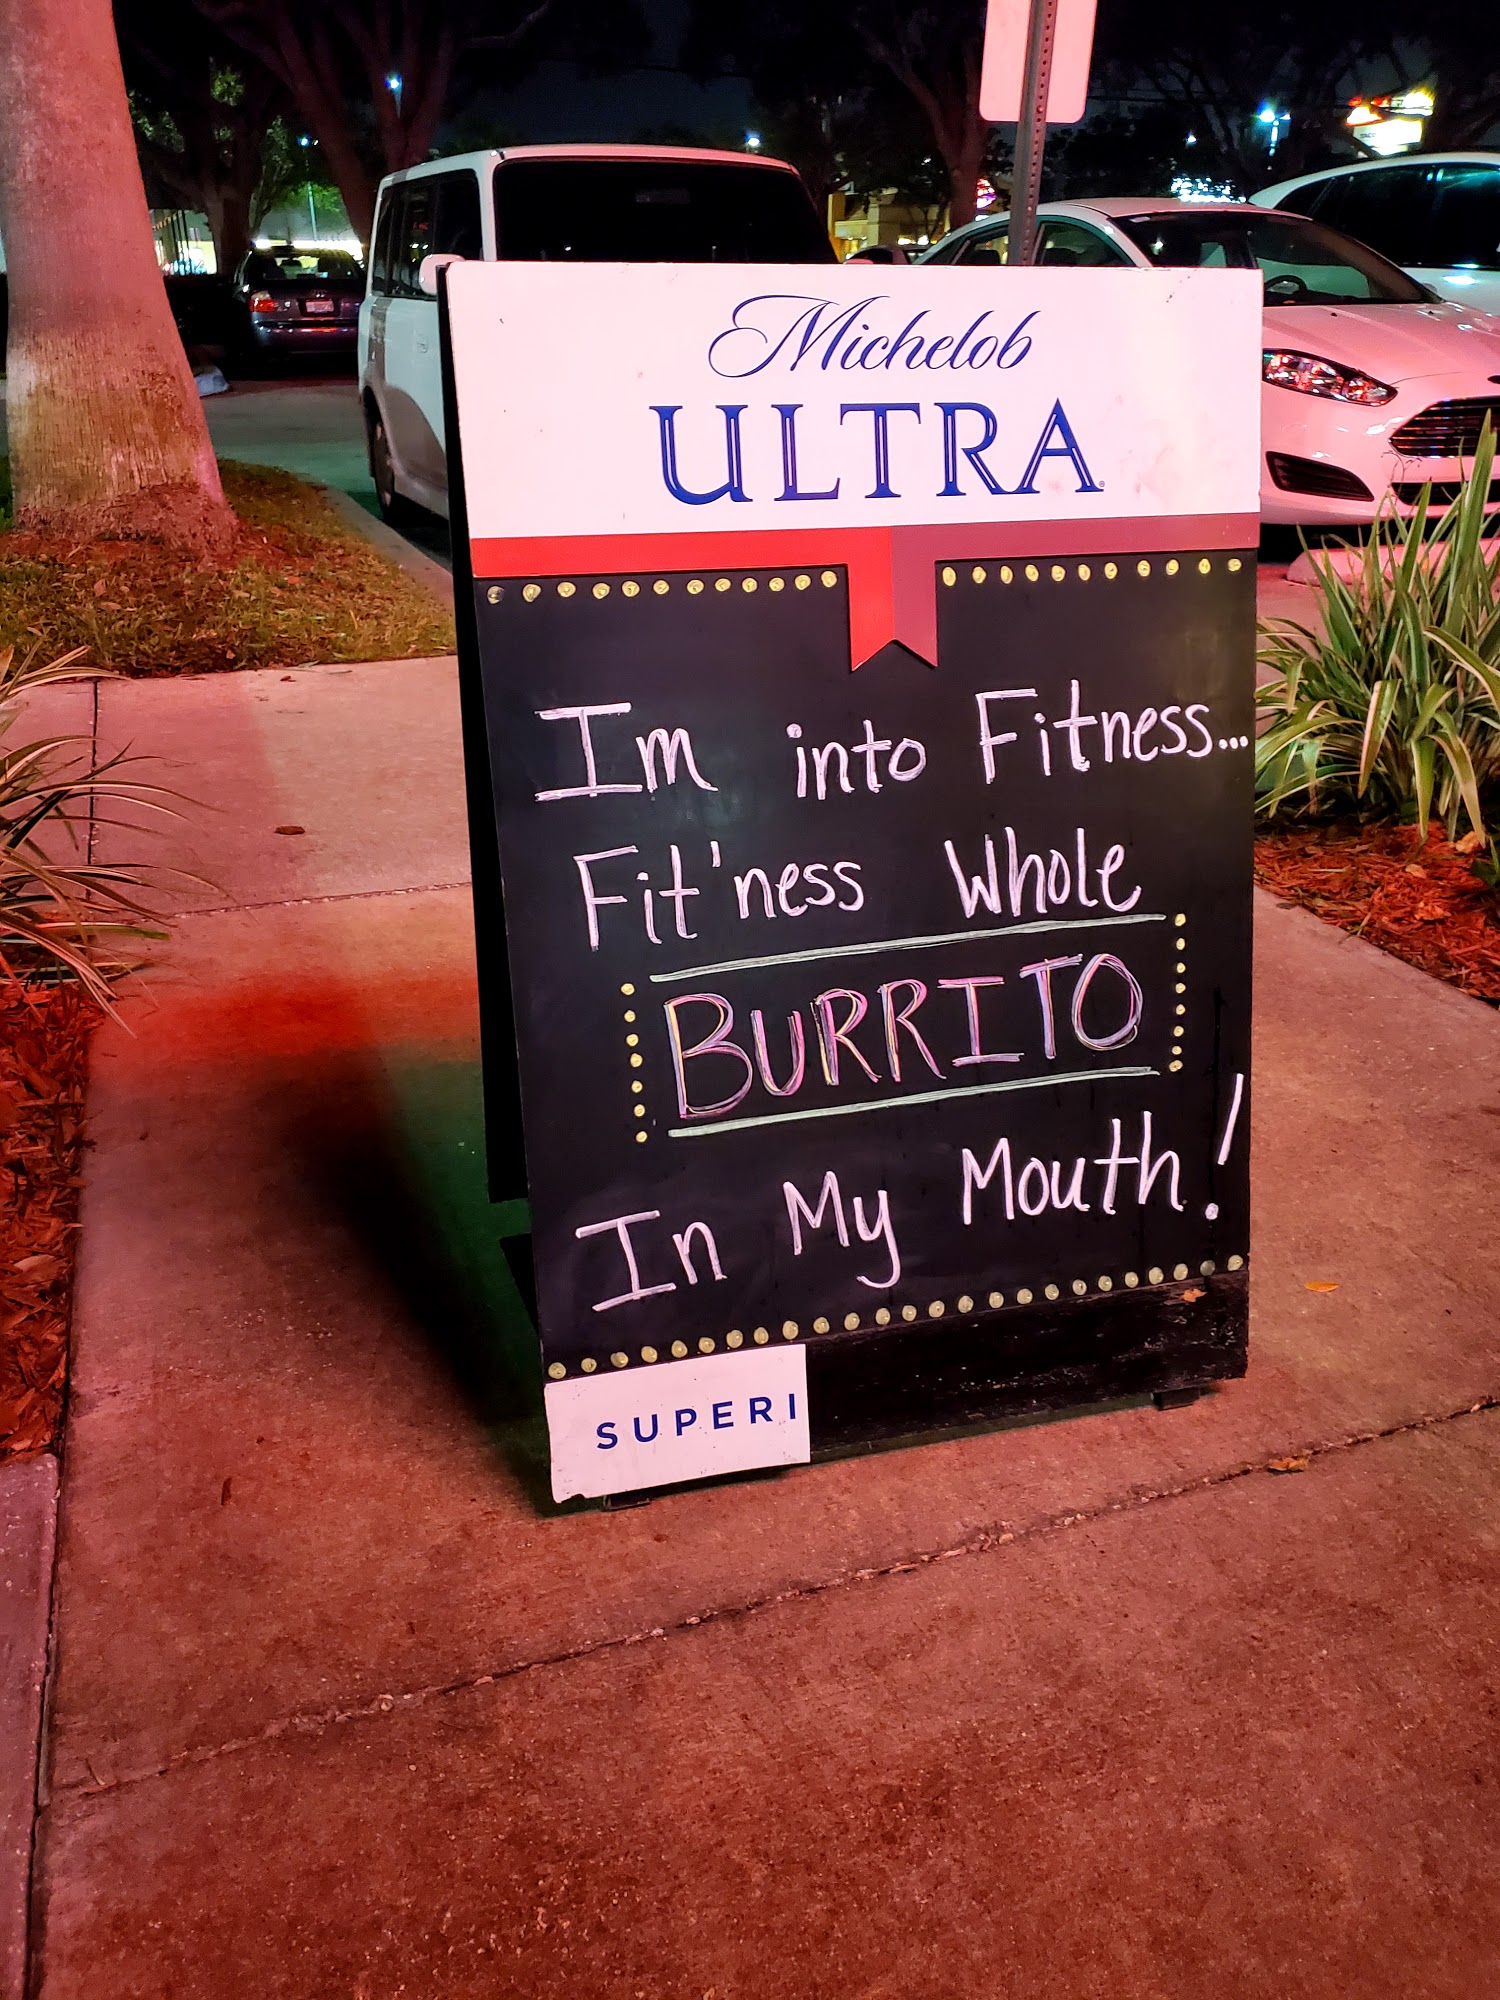 Michelob
ULTRA
Im into Fitness...
Fit'ness Whole
BURRITO
In My Mouth!
SUPERI